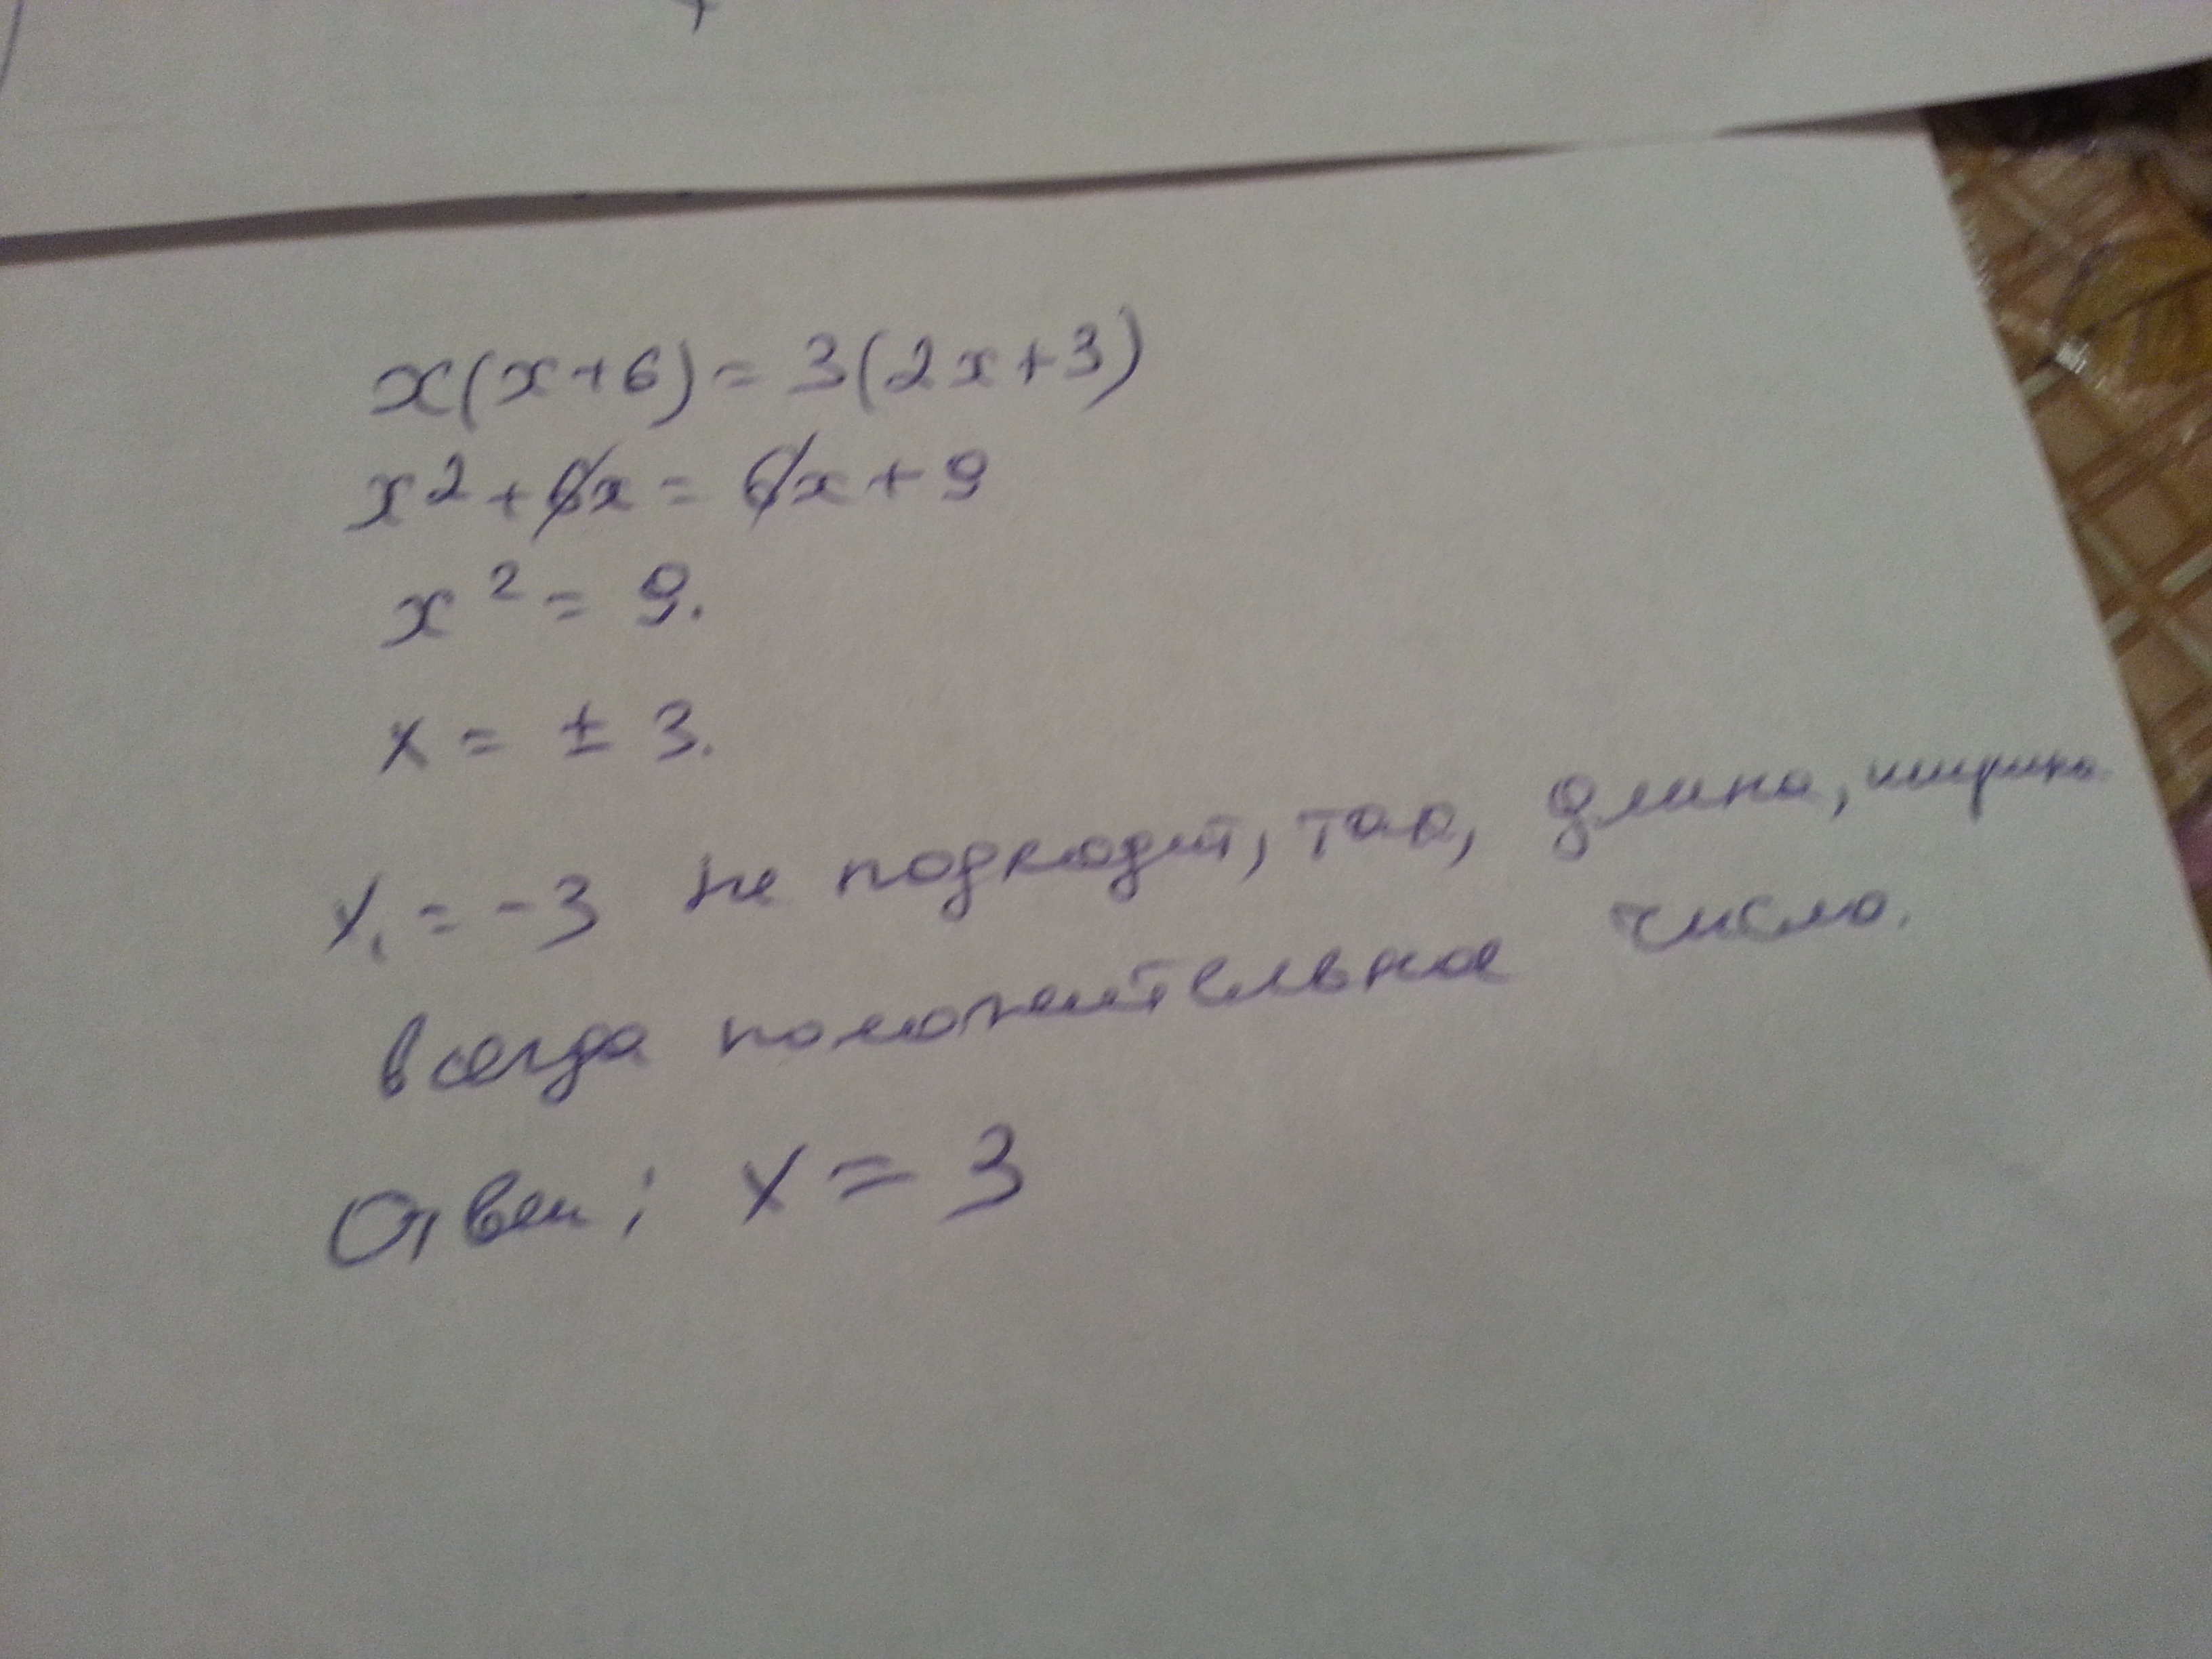 x(x+6) = 3(2x+3)
x² + 6x = 6x + 9
x² = 9.
x = ± 3.
x₁ = -3 не подходит, так, длина, ширина
всегда положительное число.
Ответ: x = 3